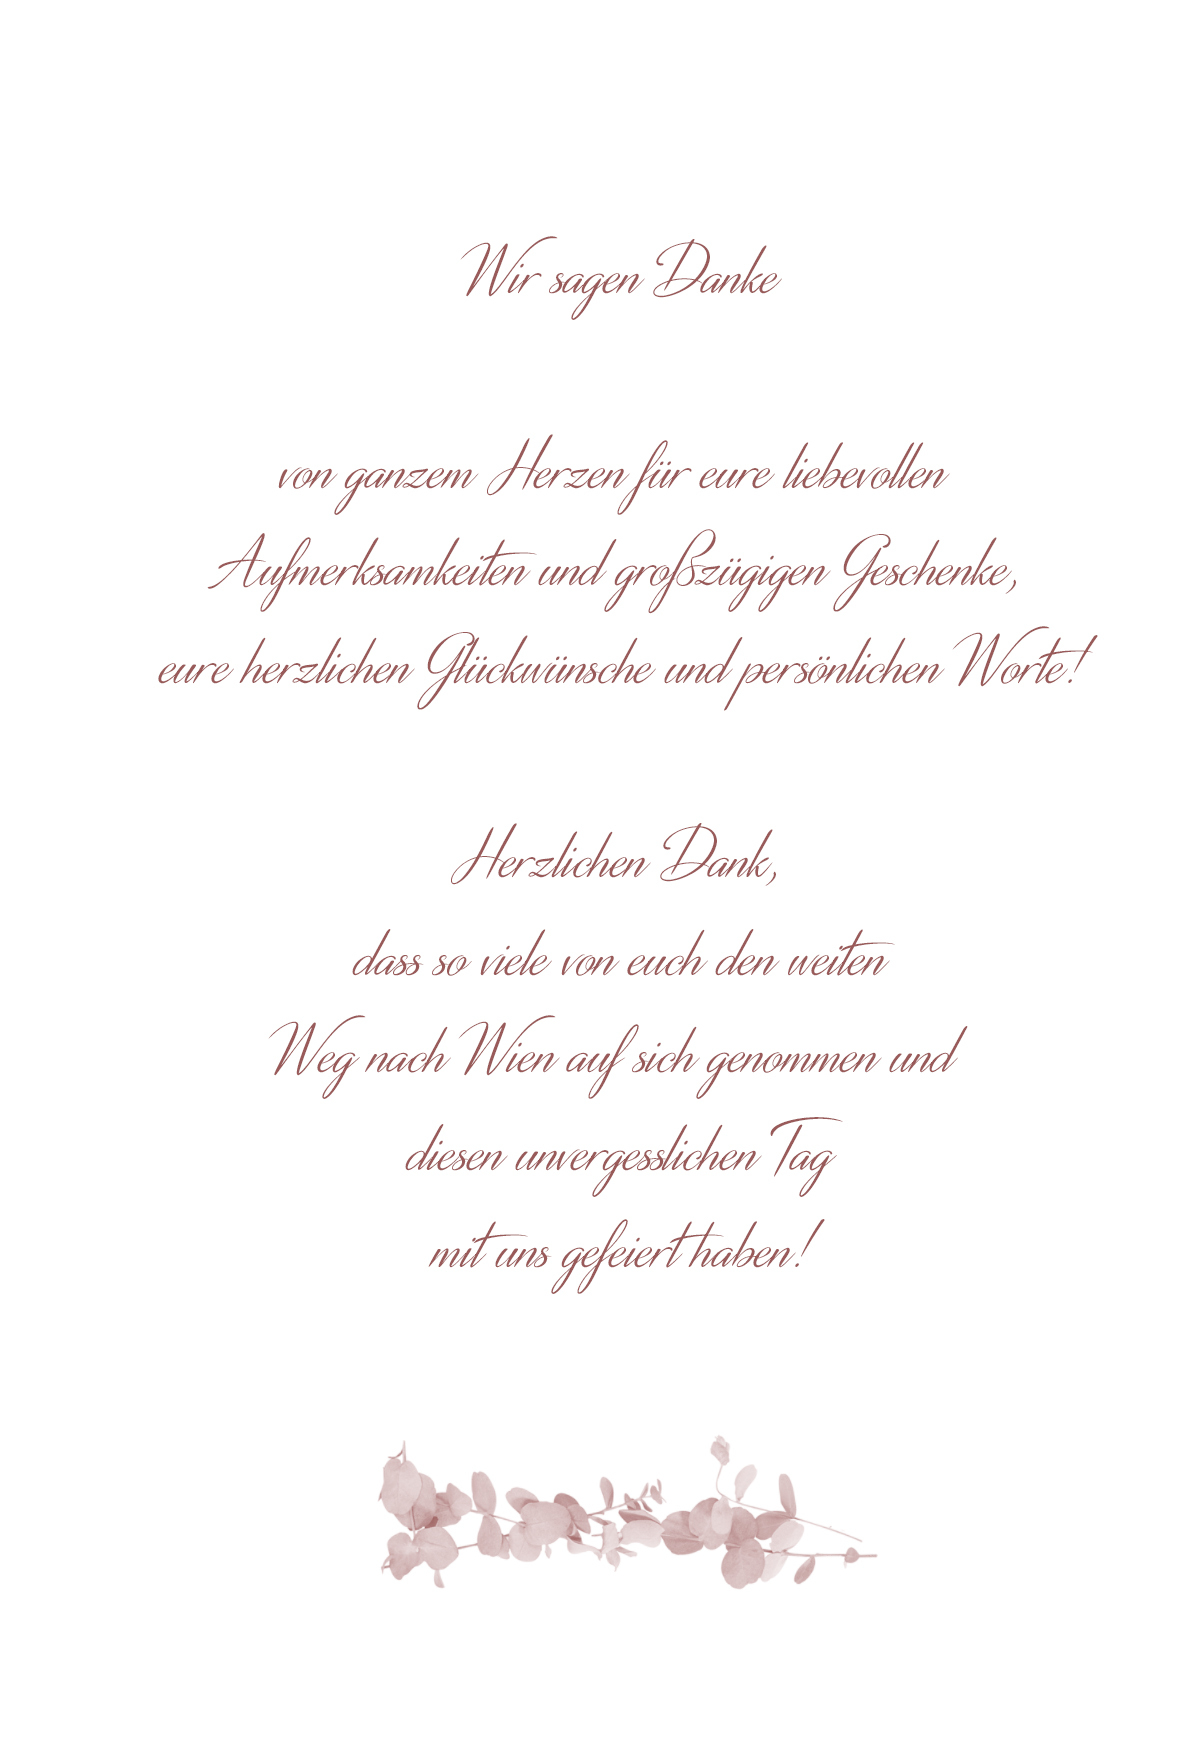 Wir sagen Danke
von ganzem Herzen für eure liebevollen
Aufmerksamkeiten und großzügigen Geschenke,
eure herzlichen Glückwünsche und persönlichen Worte!
Herzlichen Dank,
dass so viele von euch den weiten
Weg nach Wien auf sich genommen und
diesen unvergesslichen Tag
mit uns gefeiert haben!